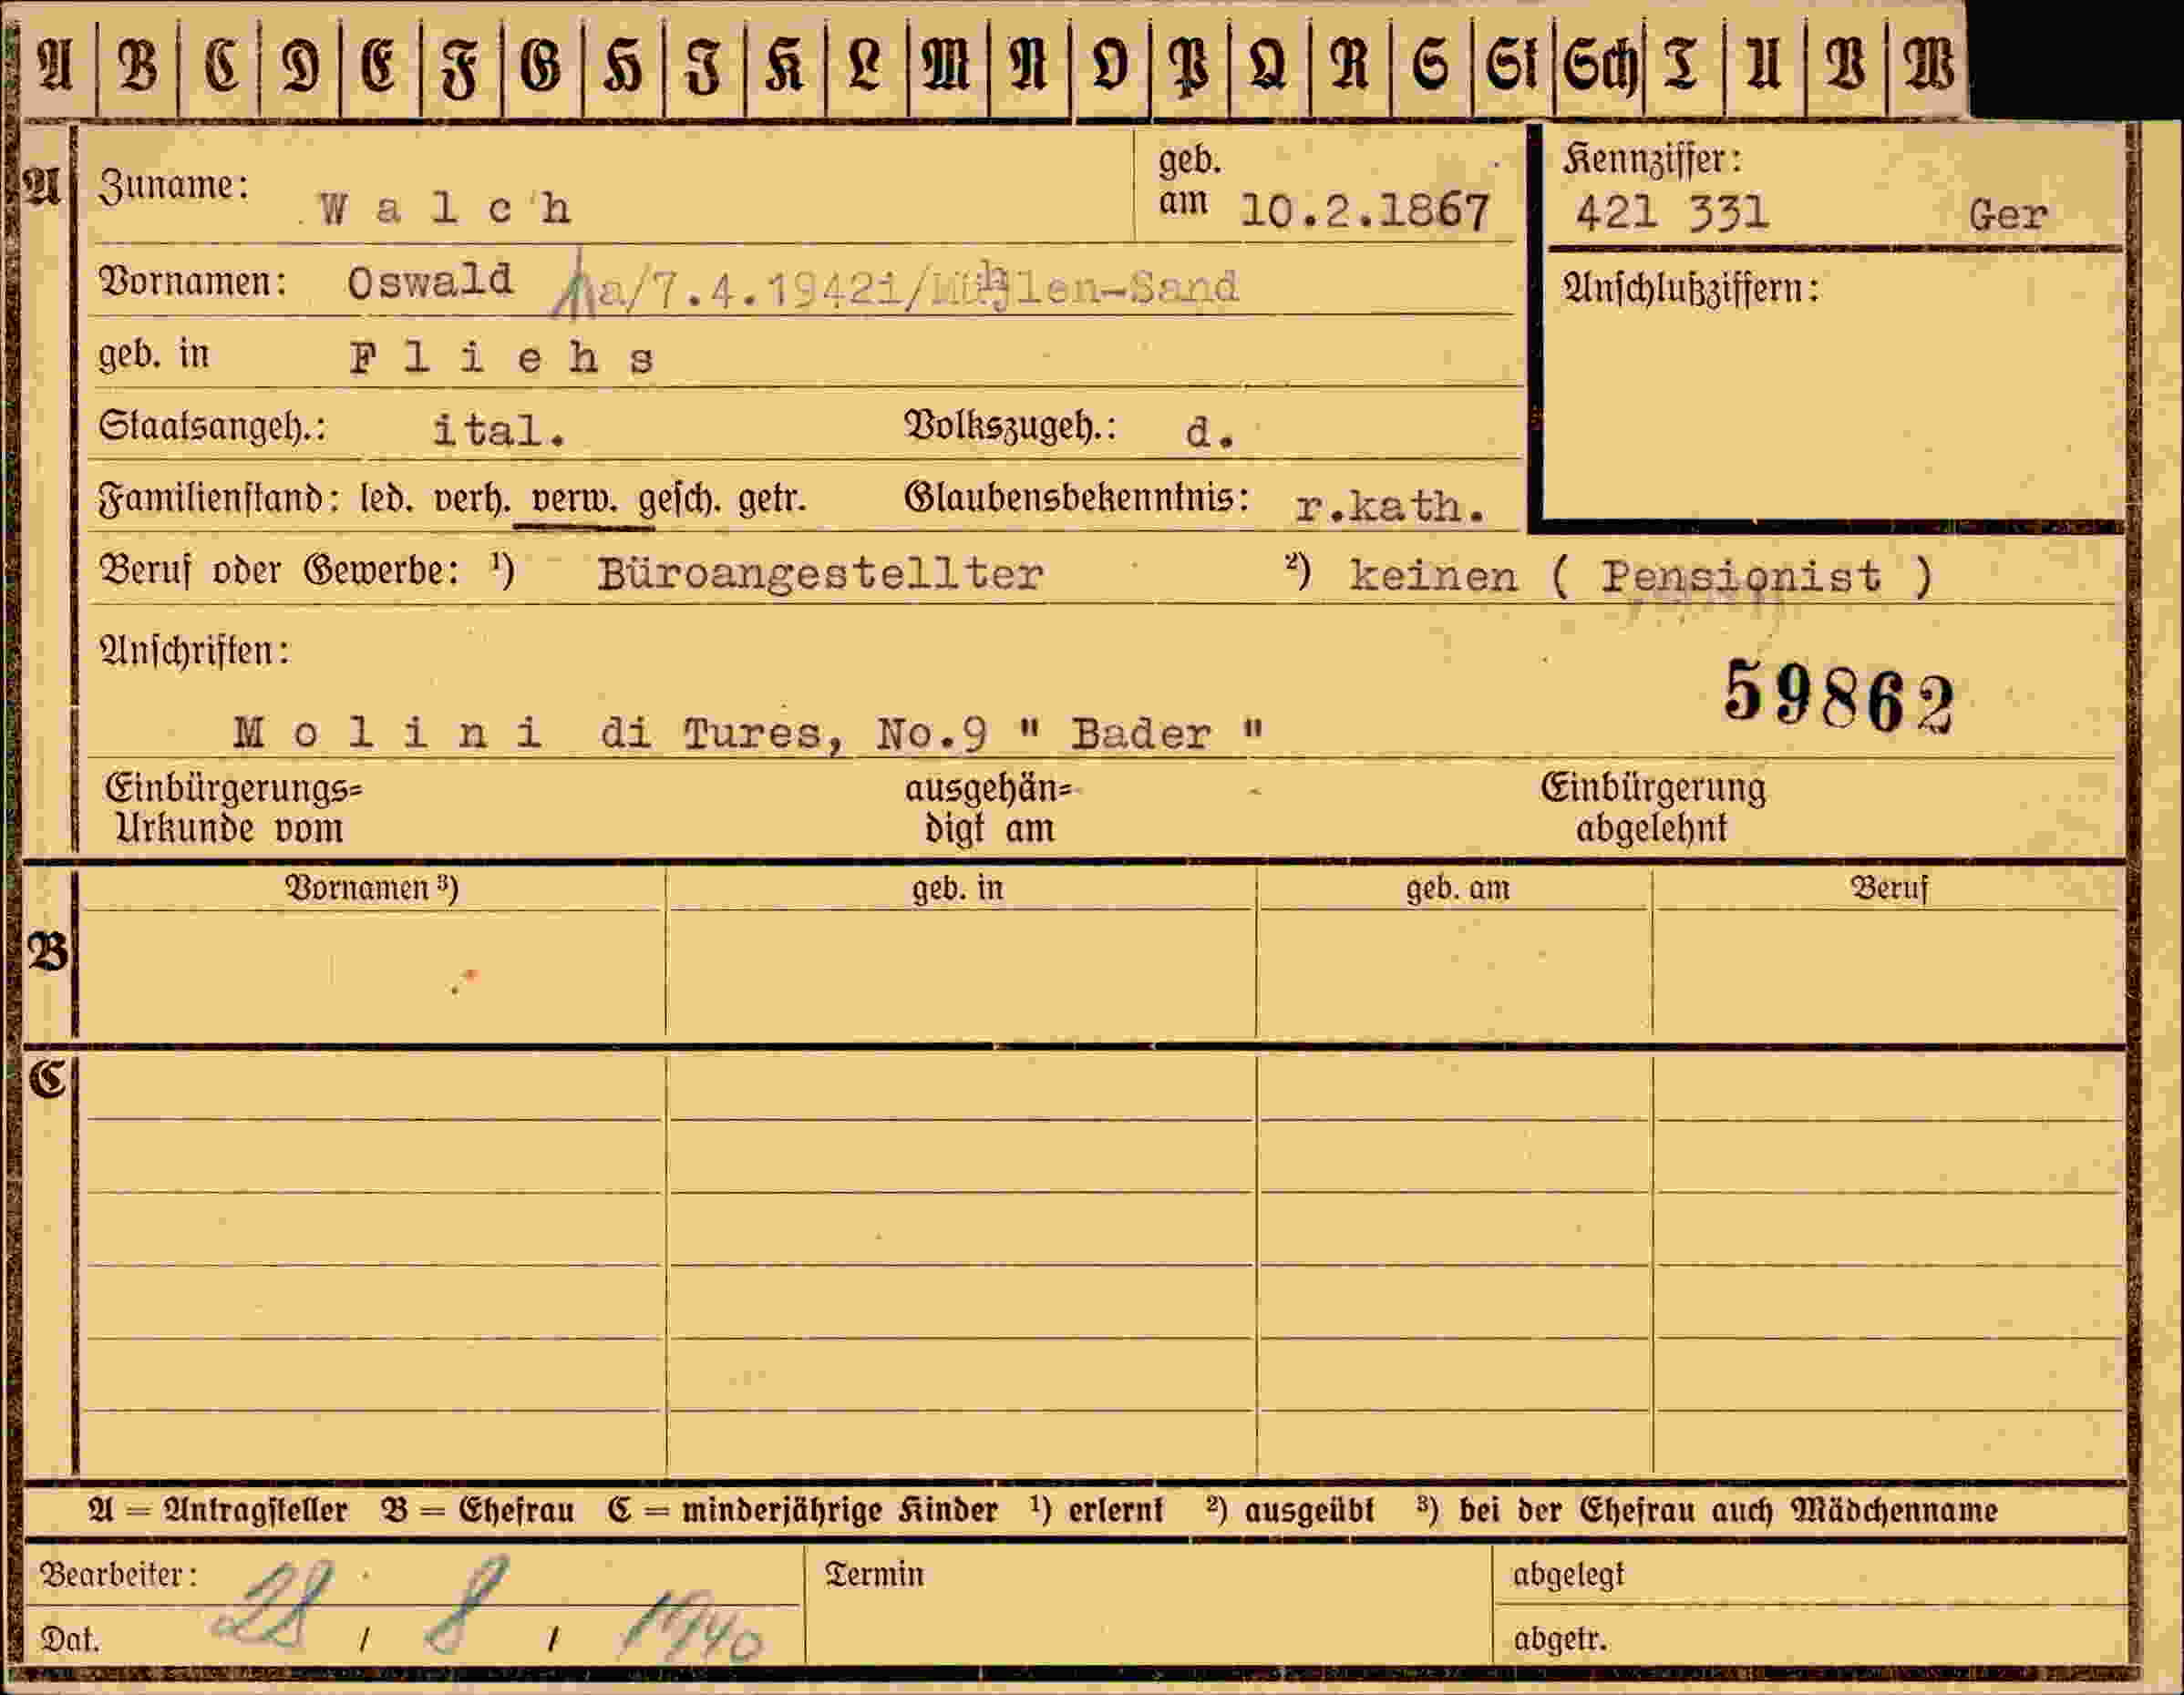 A B C D E F G H J K L M N O P Q R S St Sch T U V W
A Zuname: Walch geb. am 10.2.1867 Kennziffer: 421 331 Ger
Vornamen: Oswald a/7.4.1942i/Mühlen-Sand Anschlußziffern:
geb. in Fliehs
Staatsangeh.: ital. Volkszugeh.: d.
Familienstand: led. verh. verw. gesch. getr. Glaubensbekenntnis: r.kath.
Beruf oder Gewerbe: ¹) Büroangestellter ²) keinen ( Pensionist )
Anschriften:
59862
Molini di Tures, No.9 " Bader "
Einbürgerungs= ausgehän= Einbürgerung
Urkunde vom digt am abgelehnt
Vornamen ³) geb. in geb. am Beruf
B
C
A = Antragsteller B = Ehefrau C = minderjährige Kinder ¹) erlernt ²) ausgeübt ³) bei der Ehefrau auch Mädchenname
Bearbeiter: Termin abgelegt
Dat. 28 / 8 / 1940 abgetr.